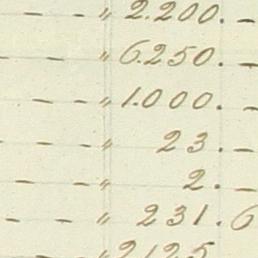 — — " 2.200. —
— — " 6.250. —
— — " 1.000. —
— — " 23. —
— — " 2. —
— — " 231. 6
" 2125